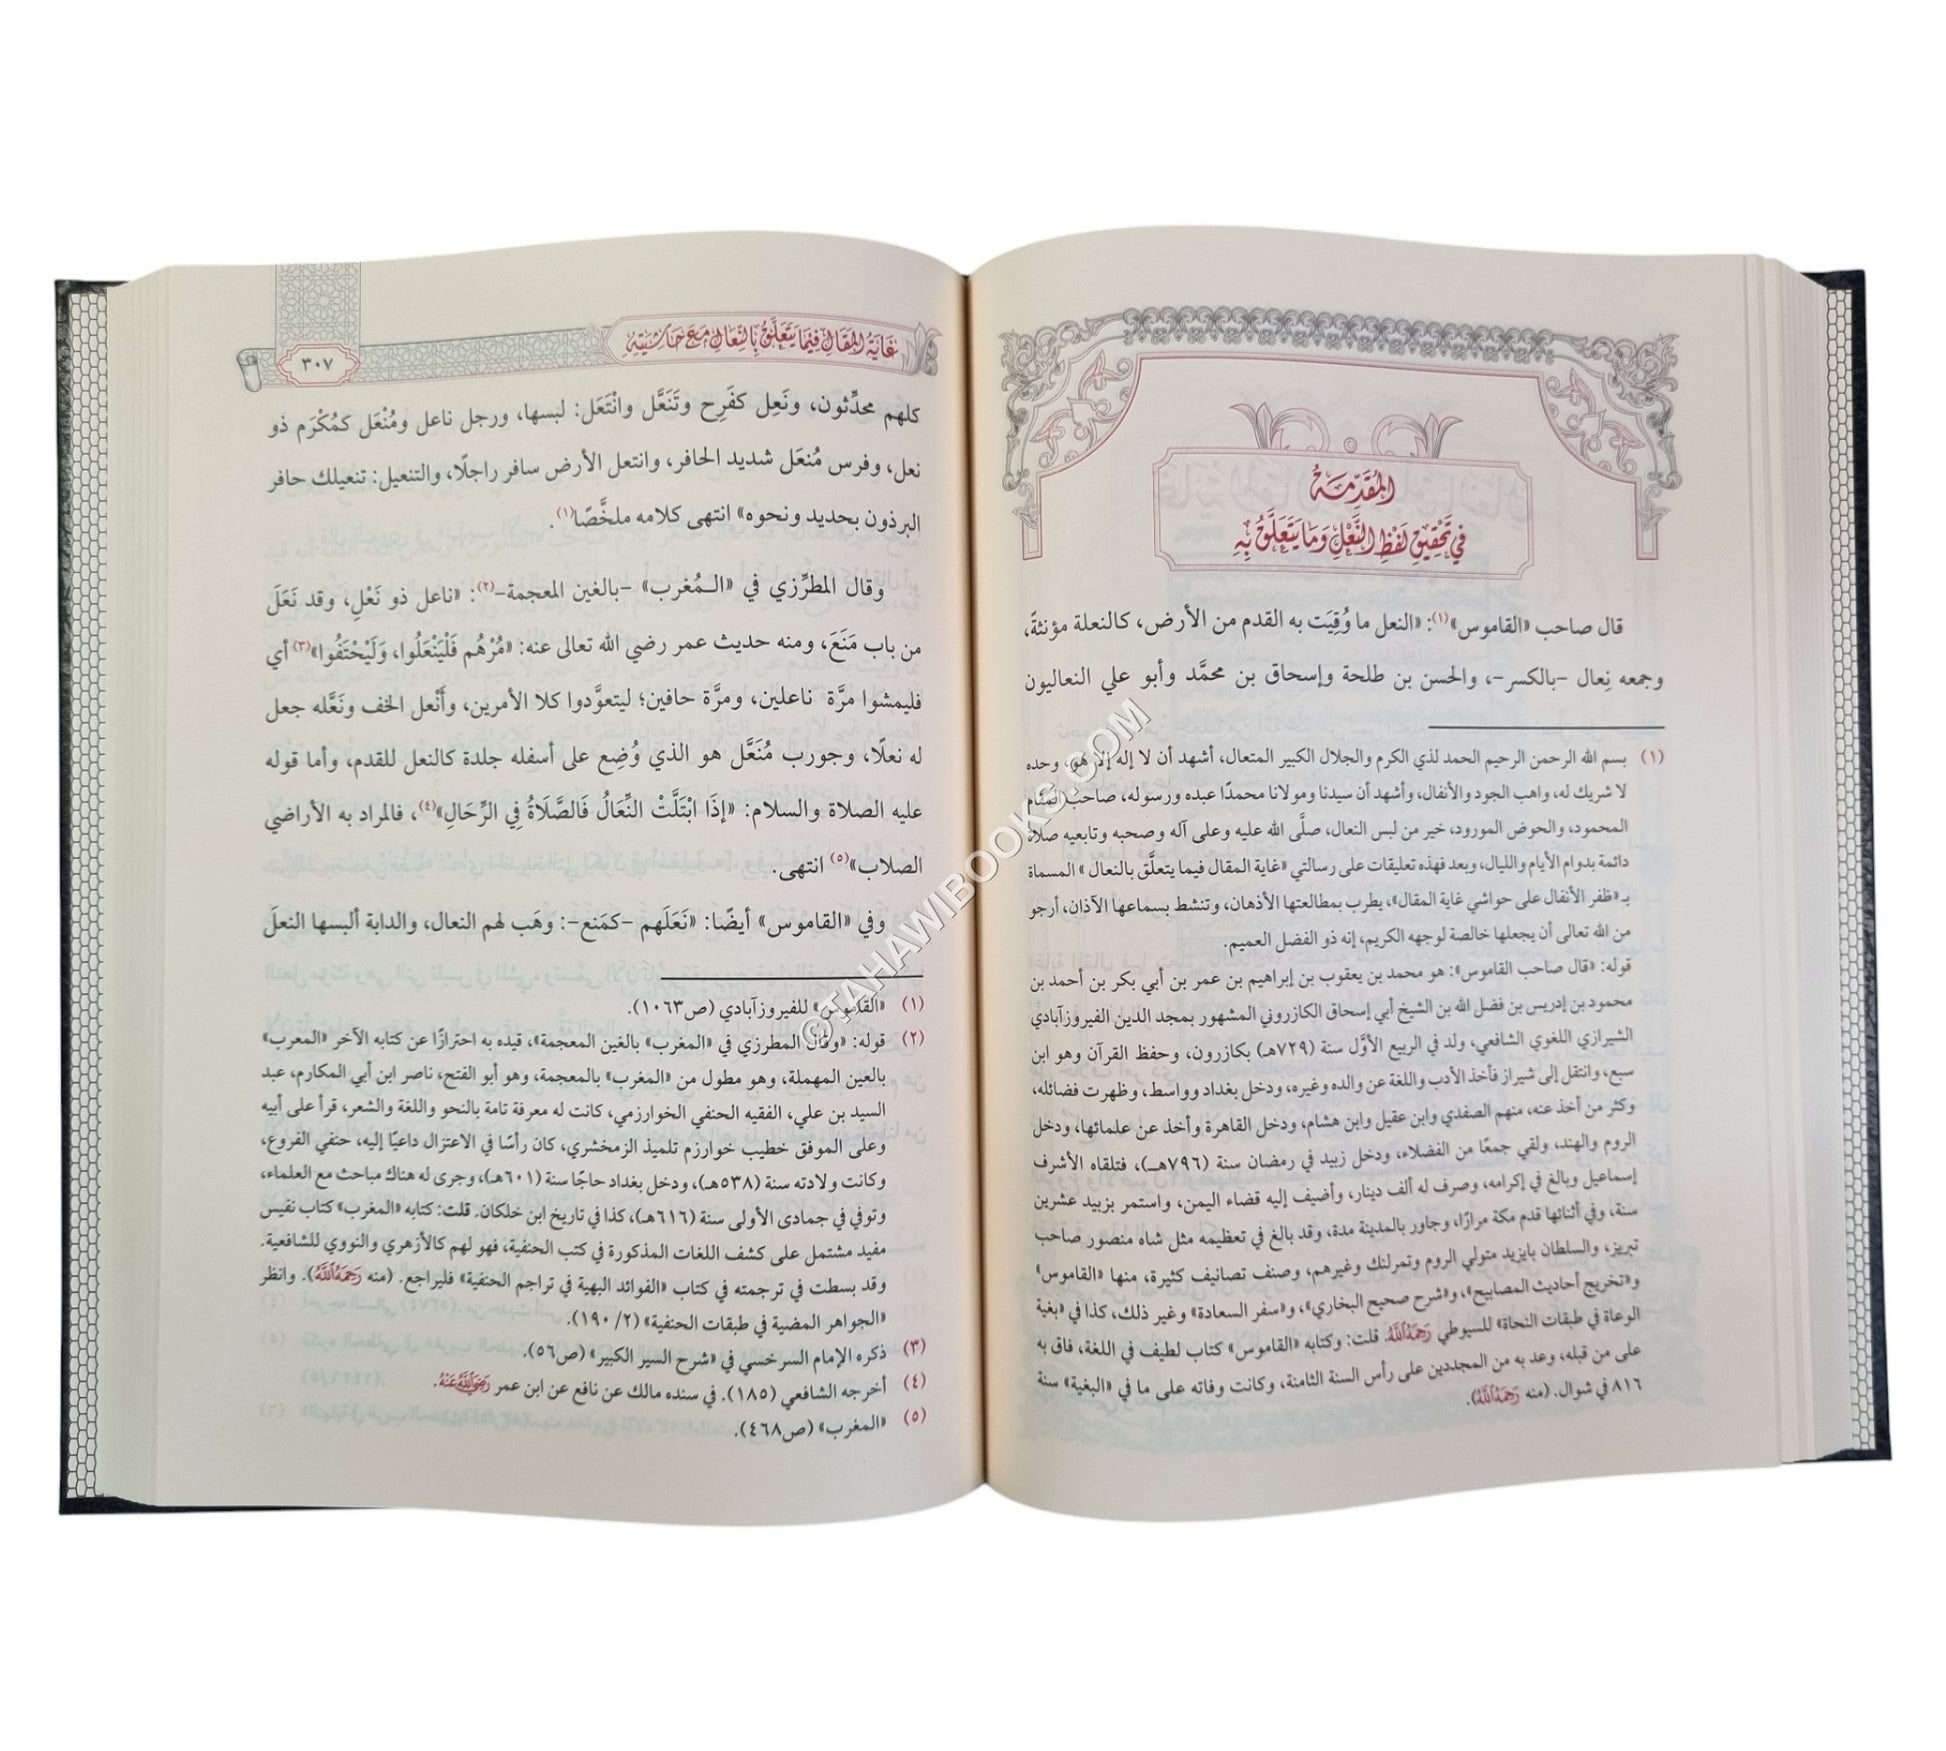 المُقَدِّمَةُ
فِي تَحْقِيقِ لَفْظِ النَّعْلِ وَمَا يَتَعَلَّقُ بِهِ
قال صاحب «القاموس»(١): «النعل ما وُقِيَت به القدم من الأرض، كالنعلة مؤنثةً،
وجمعه نِعال -بالكسر-، والحسن بن طلحة وإسحاق بن محمَّد وأبو علي النعاليون
(١) بسم الله الرحمن الرحيم الحمد لذي الكرم والجلال الكبير المتعال، أشهد أن لا إله إلا هو، وحده
لا شريك له، واهب الجود والأنفال، وأشهد أن سيدنا ومولانا محمدًا عبده ورسوله، صاحب المقام
المحمود، والحوض المورود، خير من لبس النعال، صلَّى الله عليه وعلى آله وصحبه وتابعيه صلاة
دائمة بدوام الأيام والليال، وبعد فهذه تعليقات على رسالتي «غاية المقال فيما يتعلَّق بالنعال» المسماة
بـ«ظفر الأنفال على حواشي غاية المقال»، يطرب بمطالعتها الأذهان، وتنشط بسماعها الآذان، أرجو
من الله تعالى أن يجعلها خالصة لوجهه الكريم، إنه ذو الفضل العميم.
قوله: «قال صاحب القاموس»: هو محمد بن يعقوب بن إبراهيم بن عمر بن أبي بكر بن أحمد بن
محمود بن إدريس بن فضل الله بن الشيخ أبي إسحاق الكازروني المشهور بمجد الدين الفيروزآبادي
الشيرازي اللغوي الشافعي، ولد في الربيع الأوَّل سنة (٧٢٩هـ) بكازرون، وحفظ القرآن وهو ابن
سبع، وانتقل إلى شيراز فأخذ الأدب واللغة عن والده وغيره، ودخل بغداد وواسط، وظهرت فضائله،
وكثر من أخذ عنه، منهم الصفدي وابن عقيل وابن هشام، ودخل القاهرة وأخذ عن علمائها، ودخل
الروم والهند، ولقي جمعًا من الفضلاء، ودخل زبيد في رمضان سنة (٧٩٦هـ)، فتلقاه الأشرف
إسماعيل وبالغ في إكرامه، وصرف له ألف دينار، وأضيف إليه قضاء اليمن، واستمر بزبيد عشرين
سنة، وفي أثنائها قدم مكة مرارًا، وجاور بالمدينة مدة، وقد بالغ في تعظيمه مثل شاه منصور صاحب
تبريز، والسلطان بايزيد متولي الروم وتمرلنك وغيرهم، وصنف تصانيف كثيرة، منها «القاموس»
و«تخريج أحاديث المصابيح»، و«شرح صحيح البخاري»، و«سفر السعادة» وغير ذلك، كذا في «بغية
الوعاة في طبقات النحاة» للسيوطي رَحِمَهُ اللَّهُ. قلت: وكتابه «القاموس» كتاب لطيف في اللغة، فاق به
على من قبله، وعد به من المجددين على رأس السنة الثامنة، وكانت وفاته على ما في «البغية» سنة
٨١٦ في شوال. (منه رَحِمَهُ اللَّهُ).
غَايَةُ المَقَالِ فِيمَا يَتَعَلَّقُ بِالنِّعَالِ مَعَ حَاشِيَتِهِ
٣٠٧
كلهم محدِّثون، ونَعِل كفَرِح وتَنَعَّل وانْتَعَل: لبسها، ورجل ناعل ومُنْعَل كمُكْرَم ذو
نعل، وفرس مُنعَل شديد الحافر، وانتعل الأرض سافر راجلًا، والتنعيل: تنعيلك حافر
البرذون بحديد ونحوه» انتهى كلامه ملخَّصًا(١).
وقال المطرِّزي في «الـمُغرب» -بالغين المعجمة-(٢): «ناعل ذو نَعْلٍ، وقد نَعَلَ
من باب مَنَعَ، ومنه حديث عمر رضي الله تعالى عنه: «مُرْهُم فَلْيَنْعَلُوا، وَلْيَحْتَفُوا»(٣) أي
فليمشوا مرَّة ناعلين، ومرَّة حافين؛ ليتعوَّدوا كلا الأمرين، وأَنْعل الخف ونَعَّله جعل
له نعلًا، وجورب مُنَعَّل هو الذي وُضِع على أسفله جلدة كالنعل للقدم، وأما قوله
عليه الصلاة والسلام: «إذَا ابْتَلَّتْ النِّعَالُ فَالصَّلَاةُ فِي الرِّحَالِ»(٤)، فالمراد به الأراضي
الصلاب»(٥) انتهى.
وفي «القاموس» أيضًا: «نَعَلَهم -كمَنع-: وهَب لهم النعال، والدابة ألبسها النعلَ
(١) «القاموس» للفيروزآبادي (ص١٠٦٣).
(٢) قوله: «وقال المطرزي في «المغرب» بالغين المعجمة»، قيده به احترازًا عن كتابه الآخر «المعرب»
بالعين المهملة، وهو مطول من «المغرب» بالمعجمة، وهو أبو الفتح، ناصر ابن أبي المكارم، عبد
السيد بن علي، الفقيه الحنفي الخوارزمي، كانت له معرفة تامة بالنحو واللغة والشعر، قرأ على أبيه
وعلى الموفق خطيب خوارزم تلميذ الزمخشري، كان رأسًا في الاعتزال داعيًا إليه، حنفي الفروع،
وكانت ولادته سنة (٥٣٨هـ)، ودخل بغداد حاجًا سنة (٦٠١هـ)، وجرى له هناك مباحث مع العلماء،
وتوفي في جمادى الأولى سنة (٦١٦هـ)، كذا في تاريخ ابن خلكان. قلت: كتابه «المغرب» كتاب نفيس
مفيد مشتمل على كشف اللغات المذكورة في كتب الحنفية، فهو لهم كالأزهري والنووي للشافعية.
وقد بسطت في ترجمته في كتاب «الفوائد البهية في تراجم الحنفية» فليراجع. (منه رَحِمَهُ اللَّهُ). وانظر
«الجواهر المضية في طبقات الحنفية» (٢/ ١٩٠).
(٣) ذكره الإمام السرخسي في «شرح السير الكبير» (ص٥٦).
(٤) أخرجه الشافعي (١٨٥). في سنده مالك عن نافع عن ابن عمر رَضِيَ اللَّهُ عَنْهُ.
(٥) «المغرب» (ص٤٦٨).
©TAHAWIBOOKS.COM